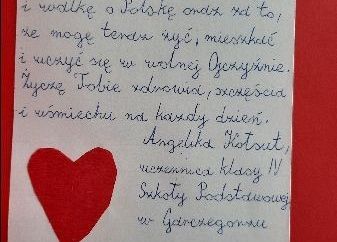 i walkę o Polskę oraz za to,
że mogę teraz żyć, mieszkać
i uczyć się w wolnej Ojczyźnie.
Życzę Tobie zdrowia, szczęścia
i uśmiechu na każdy dzień.
Angelika Kotsut,
uczennica klasy IV
Szkoły Podstawowej
w Garczegorzu